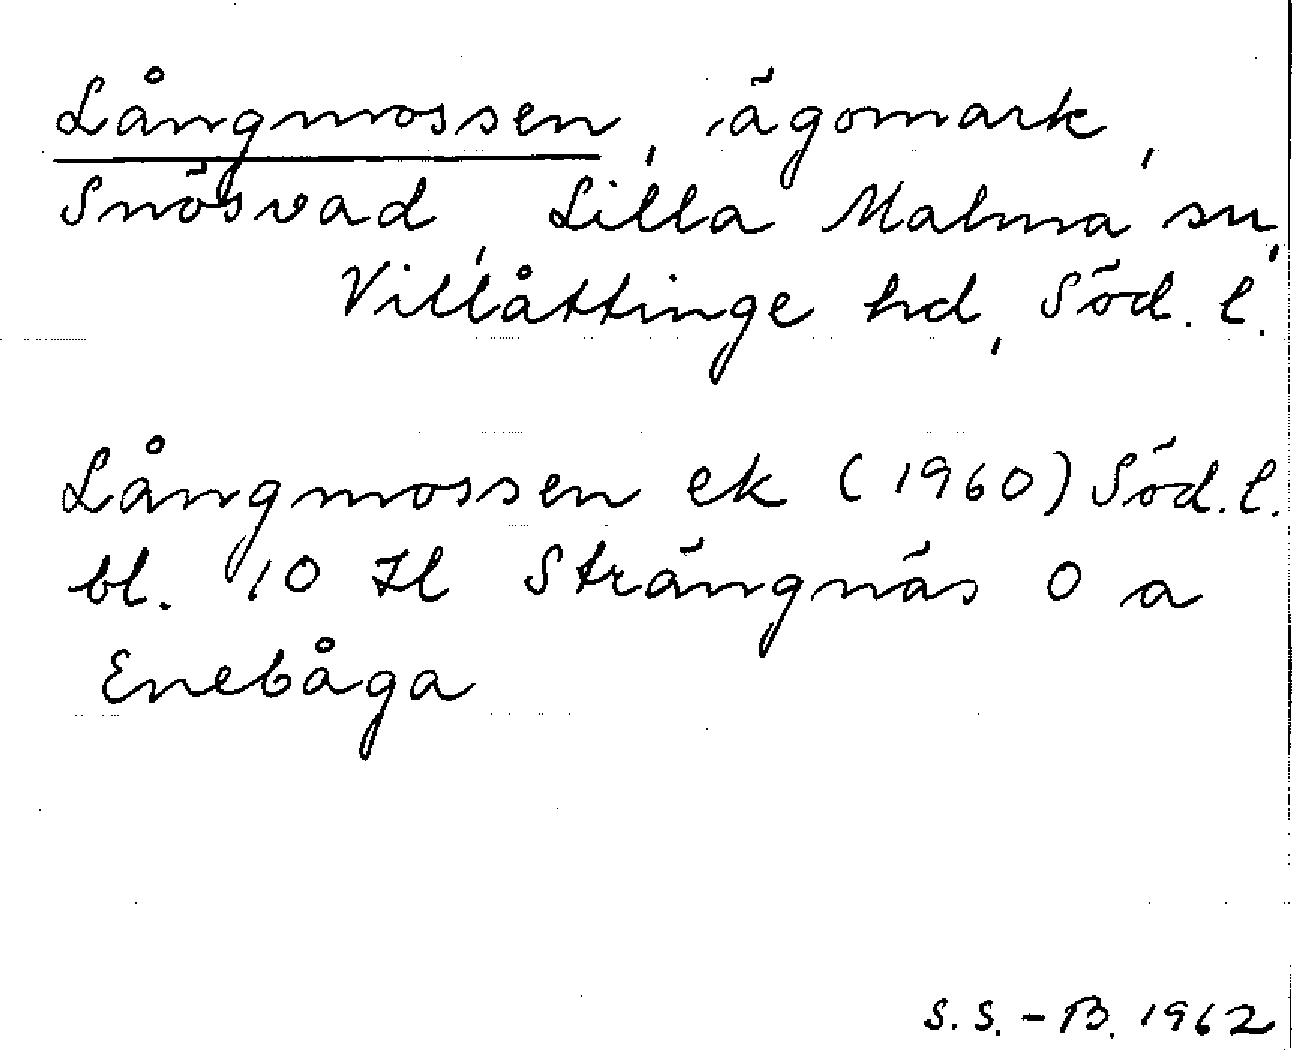 Långmossen, ägomark,
Snösvad, Lilla Malma sn,
Villåttinge hd, Söd. l.
Långmossen ek (1960) Söd. l.
bl. 10 Il Strängnäs 0 a
Enebåga
S.S.-B. 1962